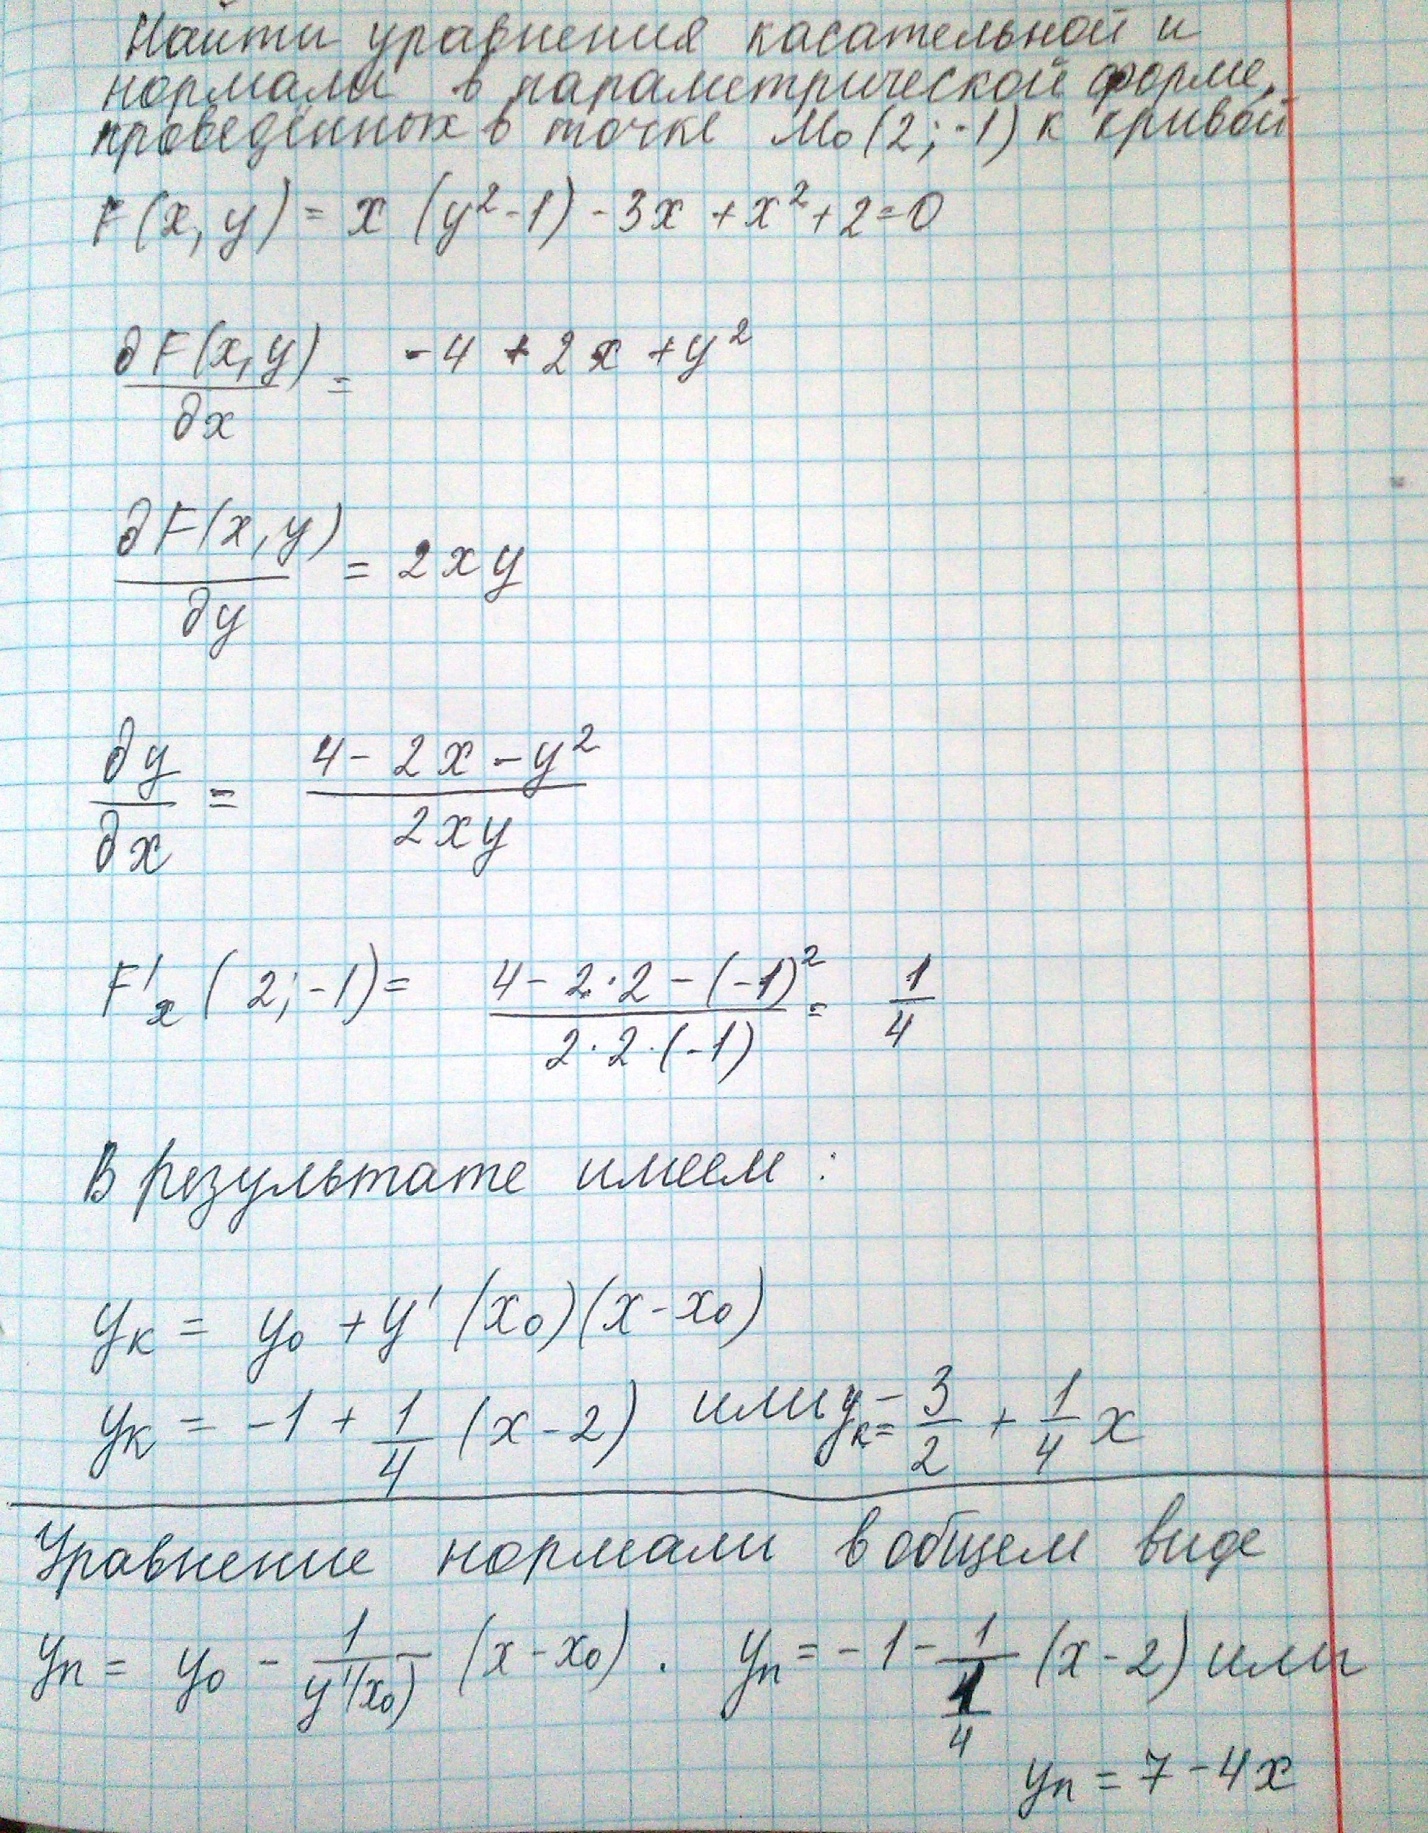 Найти уравнения касательной и
нормали в параметрической форме,
проведённых в точке M₀(2; -1) к кривой
F(x, y) = x (y² - 1) - 3x + x² + 2 = 0
∂F(x,y)/∂x = -4 + 2x + y²
∂F(x,y)/∂y = 2xy
∂y/∂x = (4 - 2x - y²)/(2xy)
F'ₓ(2; -1) = (4 - 2·2 - (-1)²)/(2·2·(-1)) = 1/4
В результате имеем:
yₖ = y₀ + y'(x₀)(x - x₀)
yₖ = -1 + 1/4 (x - 2) или yₖ = -3/2 + 1/4 x
Уравнение нормали в общем виде
yₙ = y₀ - 1/y'(x₀) (x - x₀). yₙ = -1 - 1/(1/4) (x - 2) или
yₙ = 7 - 4x